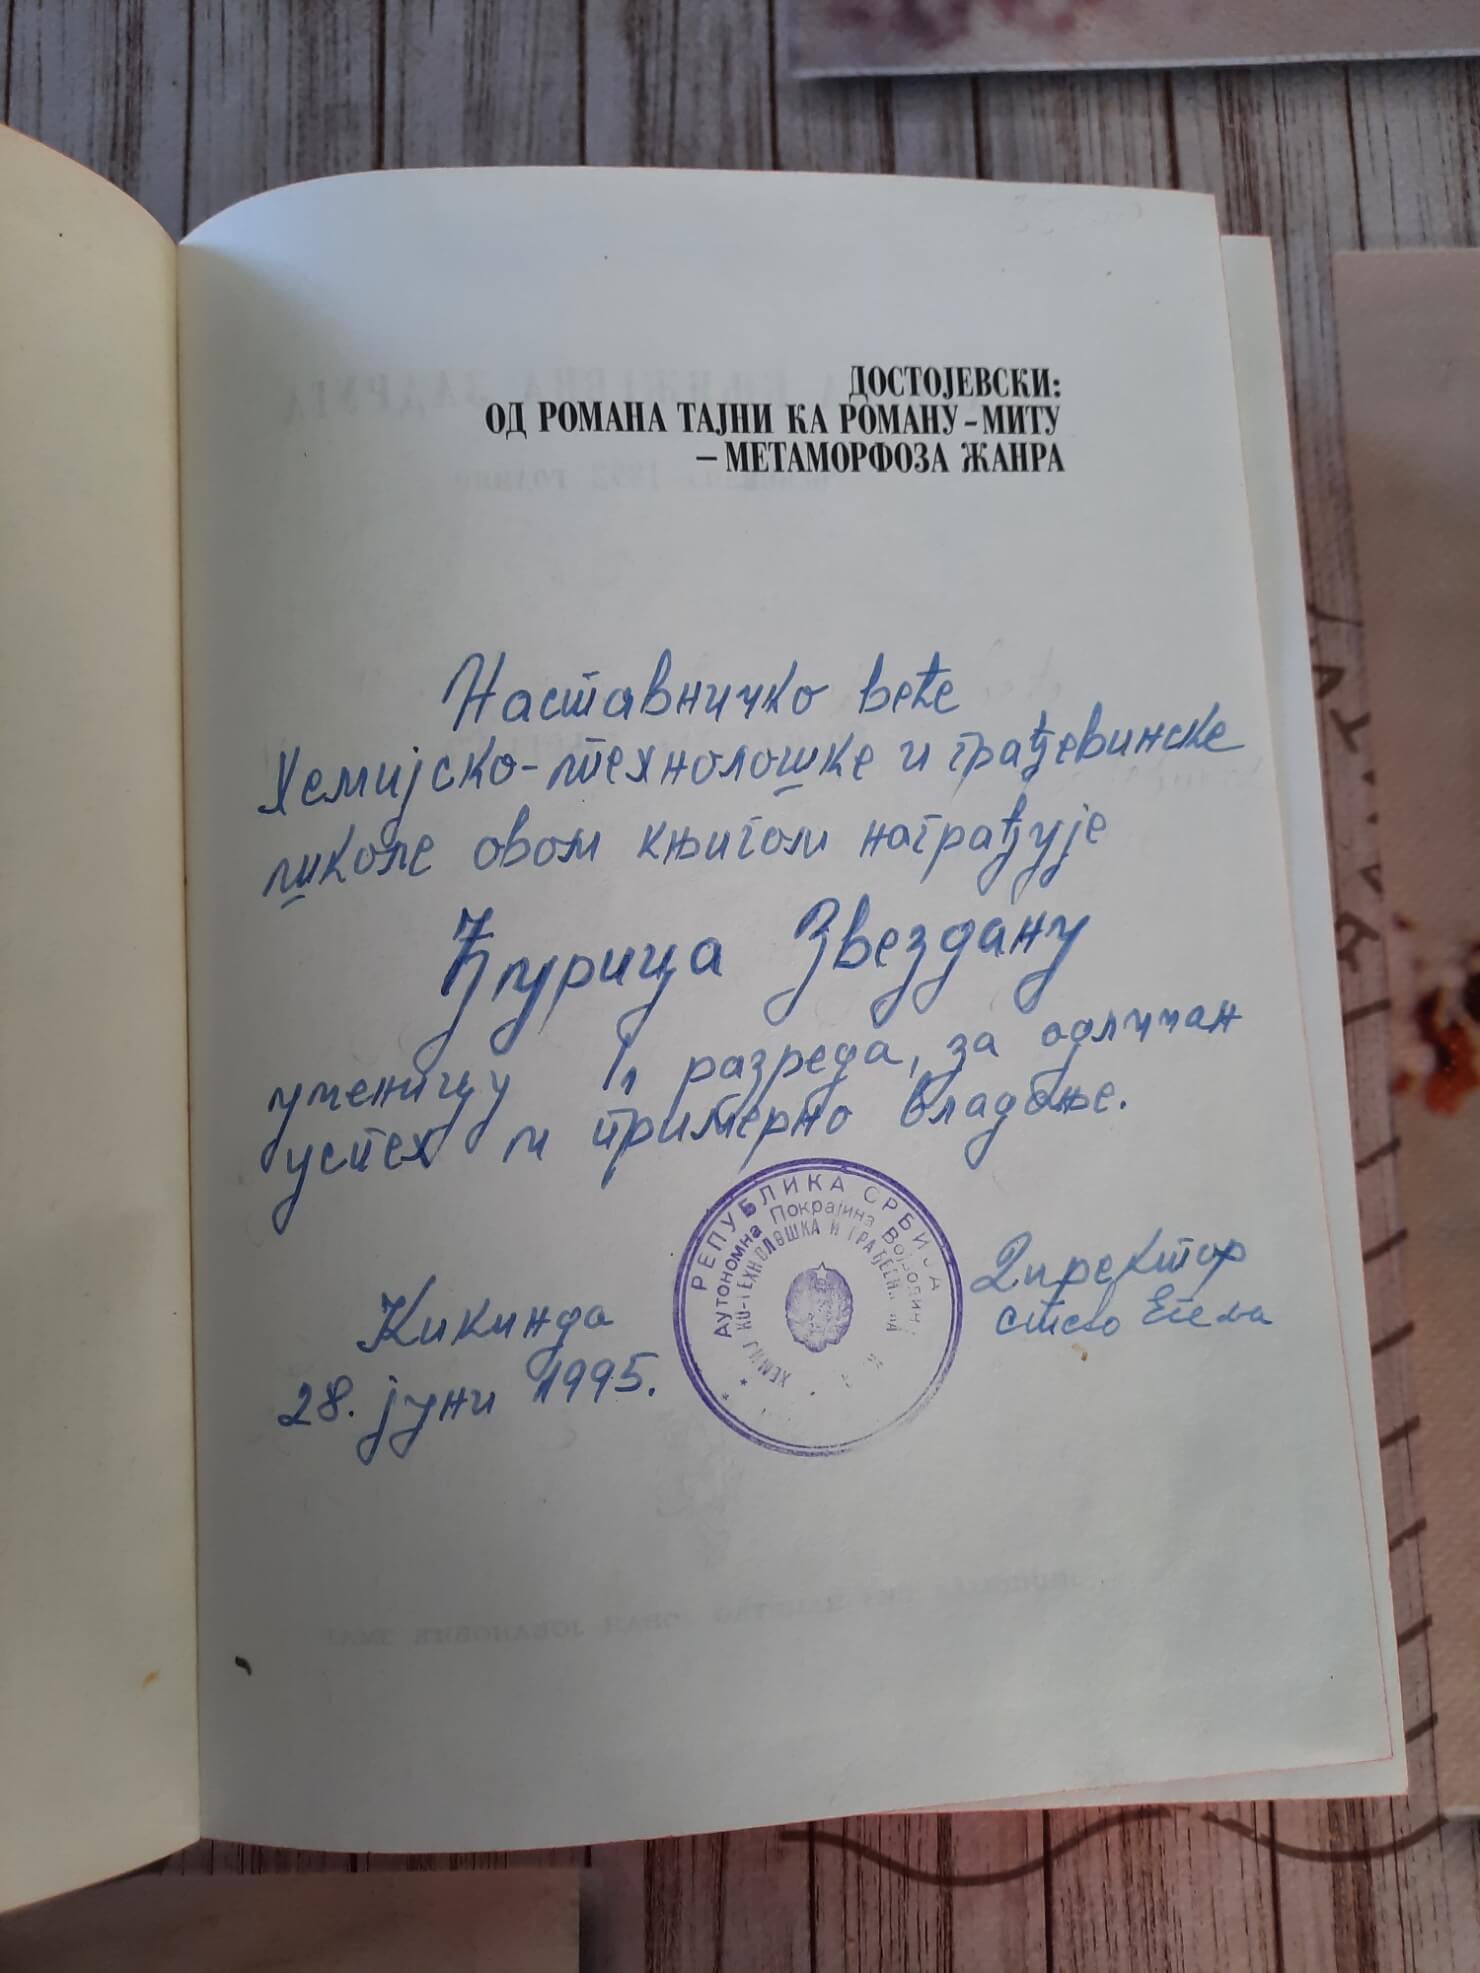 ДОСТОЈЕВСКИ:
ОД РОМАНА ТАЈНИ КА РОМАНУ-МИТУ
– МЕТАМОРФОЗА ЖАНРА
Наставничко веће
Хемијско-технолошке и грађевинске
школе овом књигом награђује
Ђурица Звездану
ученицу I разреда, за одличан
успех и примерно владање.
РЕПУБЛИКА СРБИЈА
Аутономна Покрајина Војводина
Директор
Кикинда
28. јуни 1995.